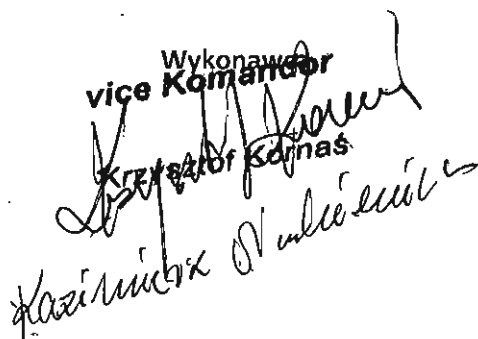 Wykonawca
vice Komandor
Krzysztof Kornaś
Kazimierz